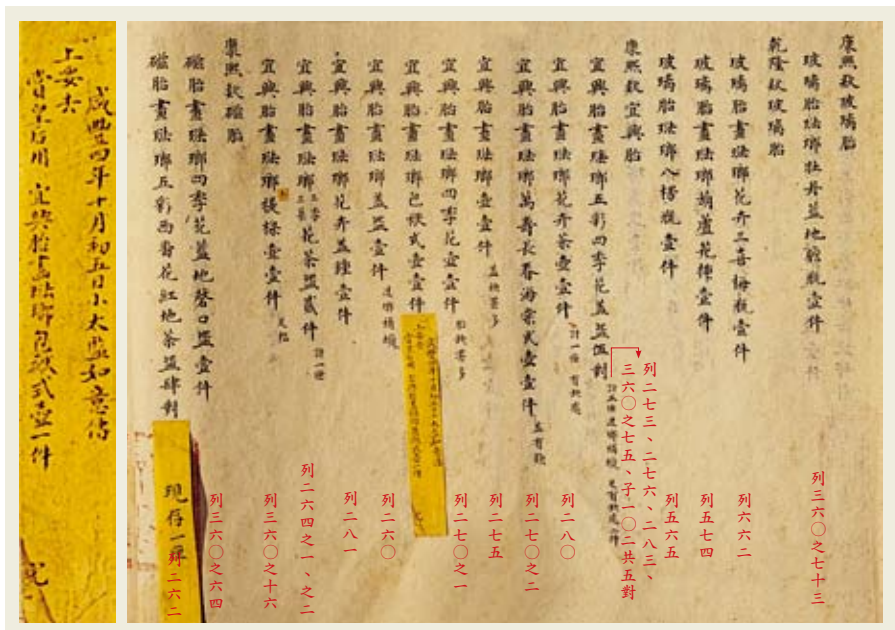 康熙款玻璃胎
玻璃胎琺瑯牡丹藍地膽瓶壹件
列三六〇之七十三
乾隆款玻璃胎
玻璃胎畫琺瑯花卉三喜梅瓶壹件
列六六二
玻璃胎畫琺瑯葫蘆花揷壹件
列五七四
玻璃胎琺瑯八楞瓶壹件
列五六五
康熙款宜興胎
宜興胎畫琺瑯五彩四季花蓋盌伍對
列二七三、二七六、二八三、
三六〇之七五、子一〇二共五對
宜興胎畫琺瑯花卉茶壺壹件
列二八〇
宜興胎畫琺瑯萬壽長春海棠式壺壹件
列二七〇之二
宜興胎畫琺瑯壺壹件
列二七五
宜興胎畫琺瑯四季花壺壹件
列二七〇之一
宜興胎畫琺瑯包袱式壺壹件
宜興胎畫琺瑯蓋盌壹件
列二六〇
宜興胎畫琺瑯花卉蓋鍾壹件
列二八一
宜興胎畫琺瑯花茶盌貳件
列二六四之一、之二
宜興胎畫琺瑯提樑壺壹件
列三六〇之十六
康熙款磁胎
磁胎畫琺瑯四季花藍地磬口盌壹件
列三六〇之六四
磁胎畫琺瑯五彩西番花紅地茶盌肆對
現存一
列二六二
咸豐四年十月初五日小太監如意傳
上要去
賞皇后用 宜興胎畫琺瑯包袱式壺一件